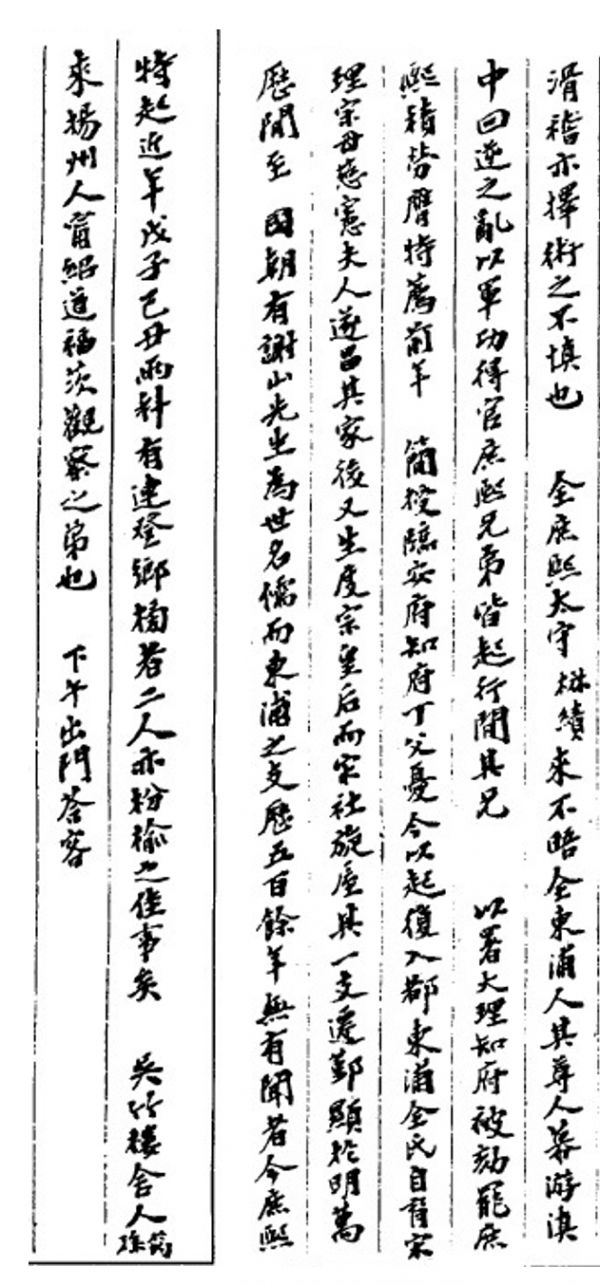 滑稽亦擇術之不慎也　全庶熙太守楙績来不晤全東浦人其尊人幕游滇
中回逆之亂以軍功得官庶熙兄弟皆起行間其兄　以署大理知府被劾罷庶
熙積勞膺特薦前年　簡授臨安府知府丁父憂今以起復入都東浦全氏自育宋
理宗母慈憲夫人遂昌其家後又生度宗皇后而宋社旋屋其一支遷鄞顯於明萬
歷間至　國朝有謝山先生為世名儒而東浦之支歷五百餘年無有聞者今庶熙
特起近年戊子己丑兩科有連登鄉榜者二人亦枌榆之佳事矣　吳竹樓舍人筠孫
来揚州人甯紹道福茨觀察之弟也　下午出門答客